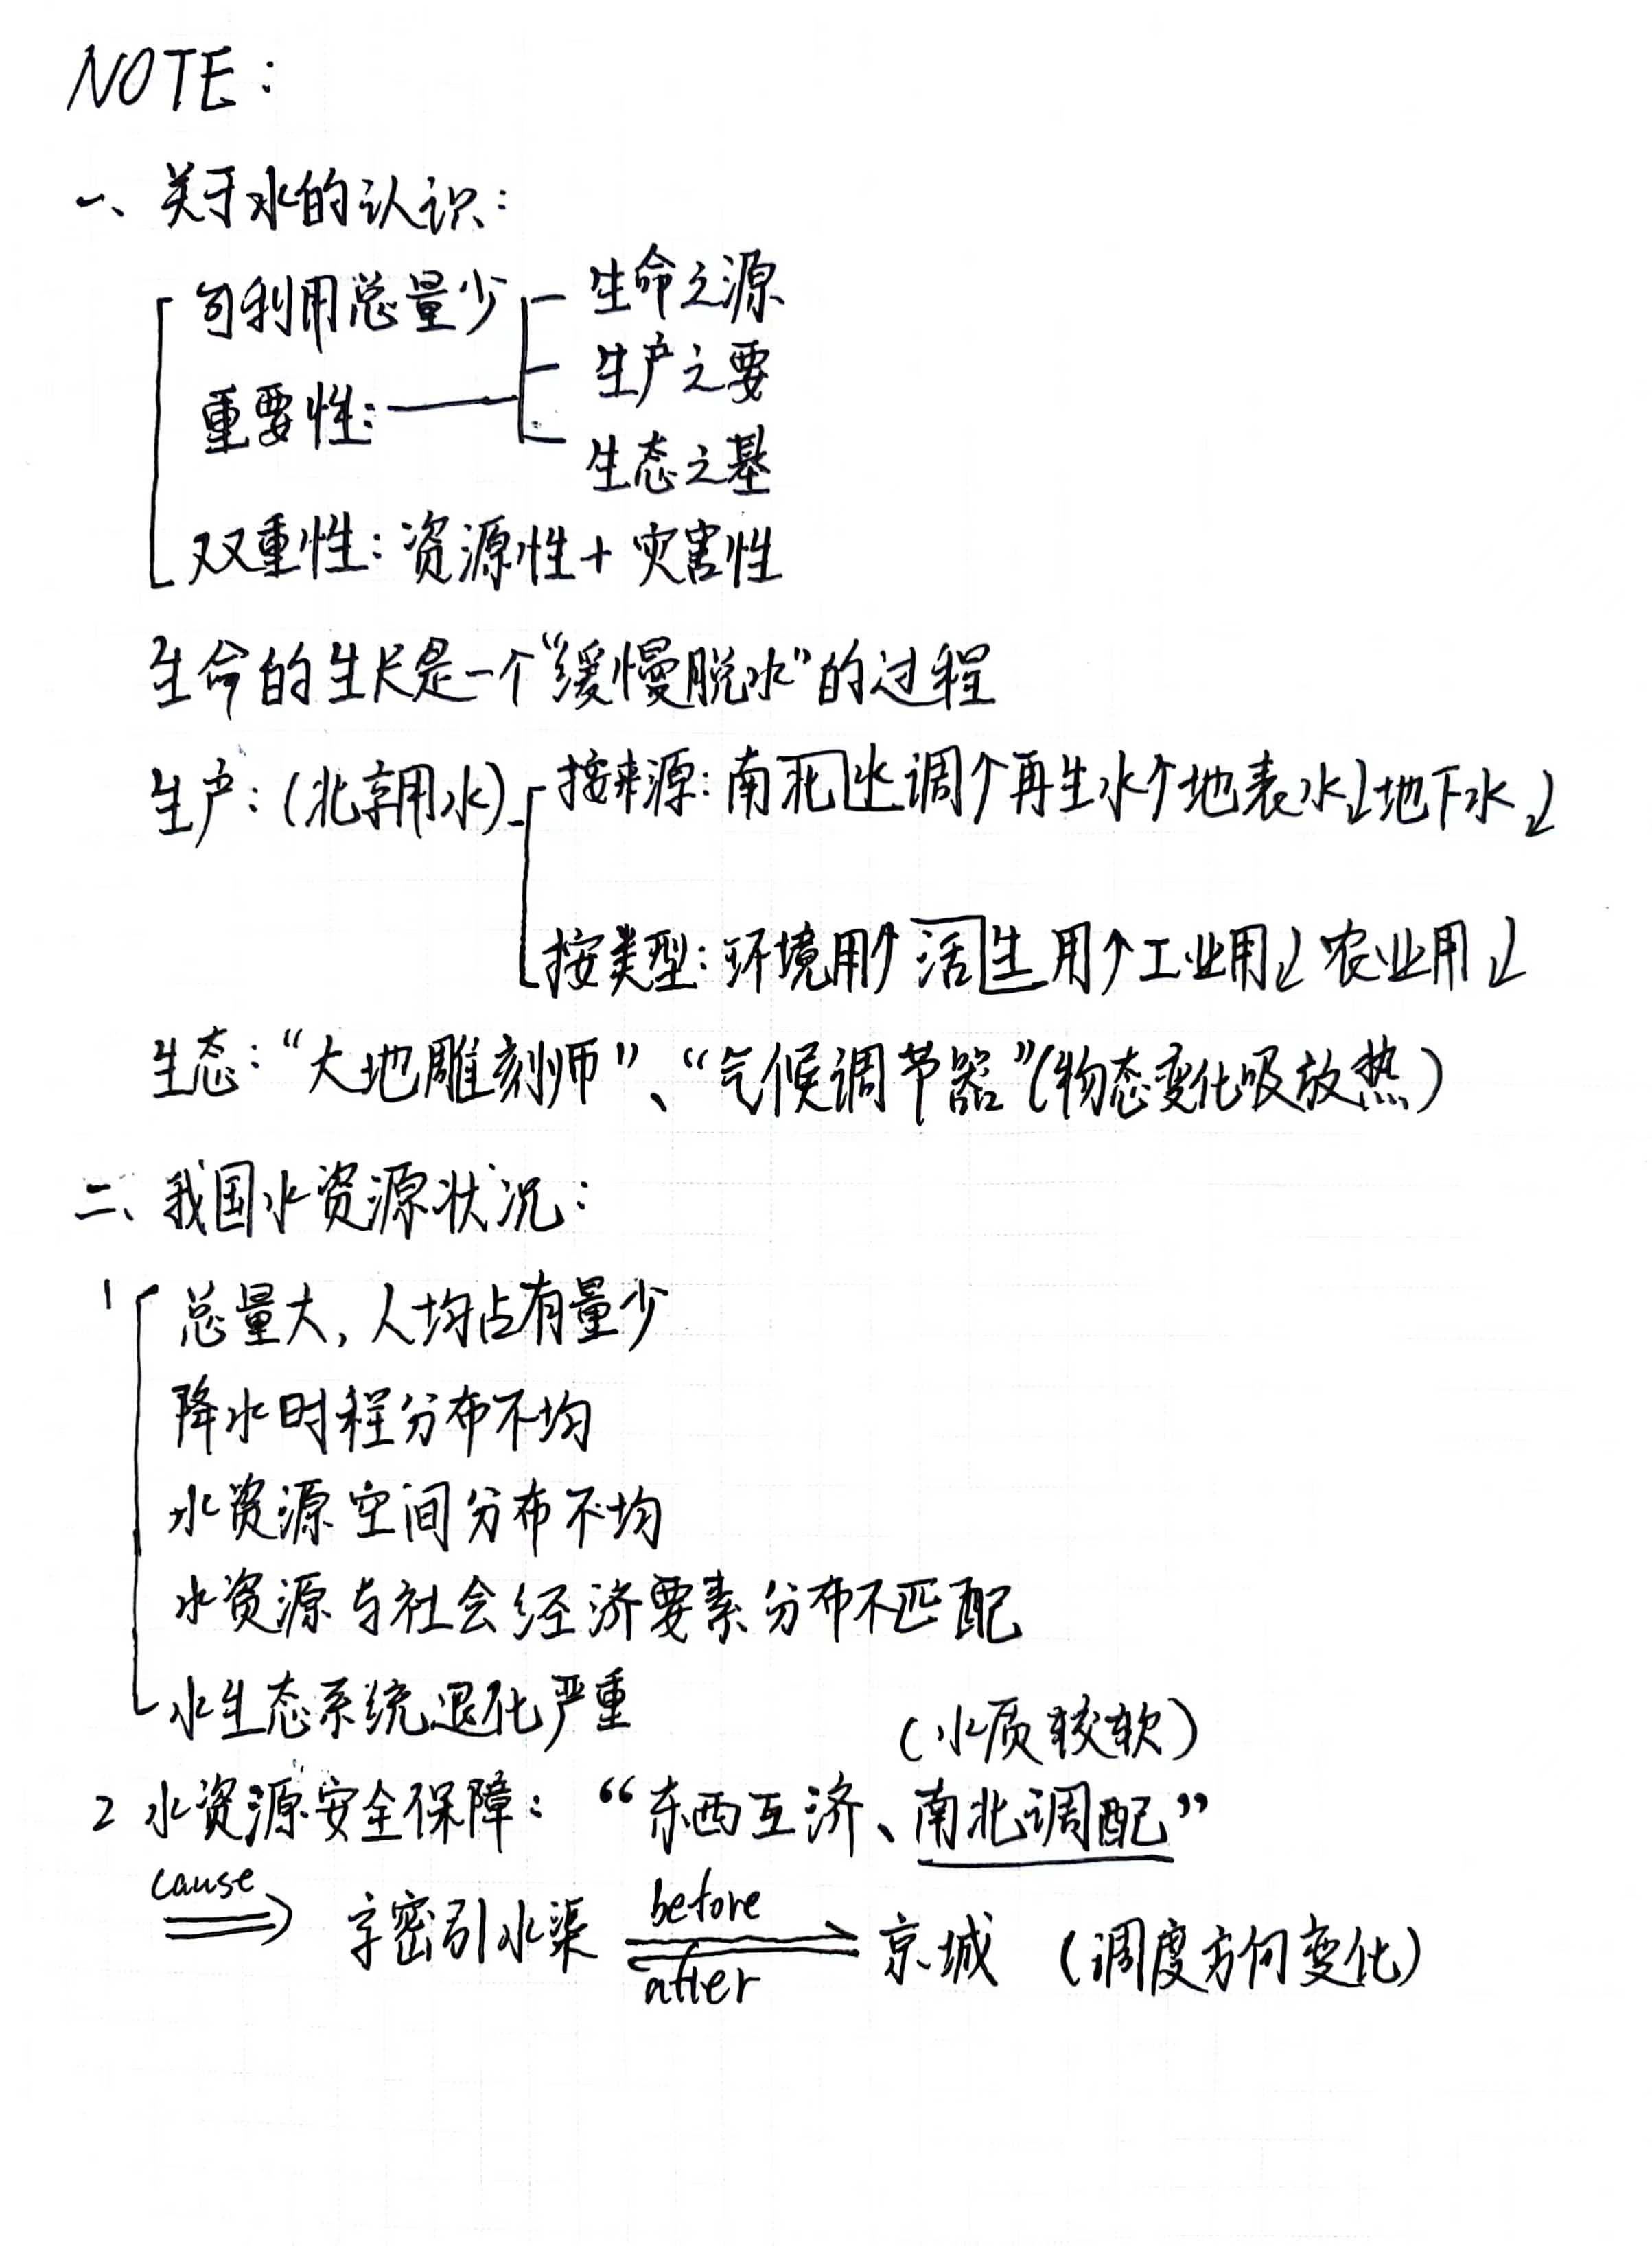 NOTE:
一、关于水的认识:
可利用总量少
重要性:
生命之源
生产之要
生态之基
双重性:资源性+灾害性
生命的生长是一个“缓慢脱水”的过程
生产:(北京用水)
按来源:南北水调↑再生水↑地表水↓地下水↓
按类型:环境用↑活生用↑工业用↓农业用↓
生态:“大地雕刻师”、“气候调节器”(物态变化吸放热)
二、我国水资源状况:
1 总量大,人均占有量少
降水时程分布不均
水资源空间分布不均
水资源与社会经济要素分布不匹配
水生态系统退化严重
(水质较软)
2 水资源安全保障:“东西互济、南北调配”
cause
⇒ 京密引水渠 before after 京城 (调度方向变化)